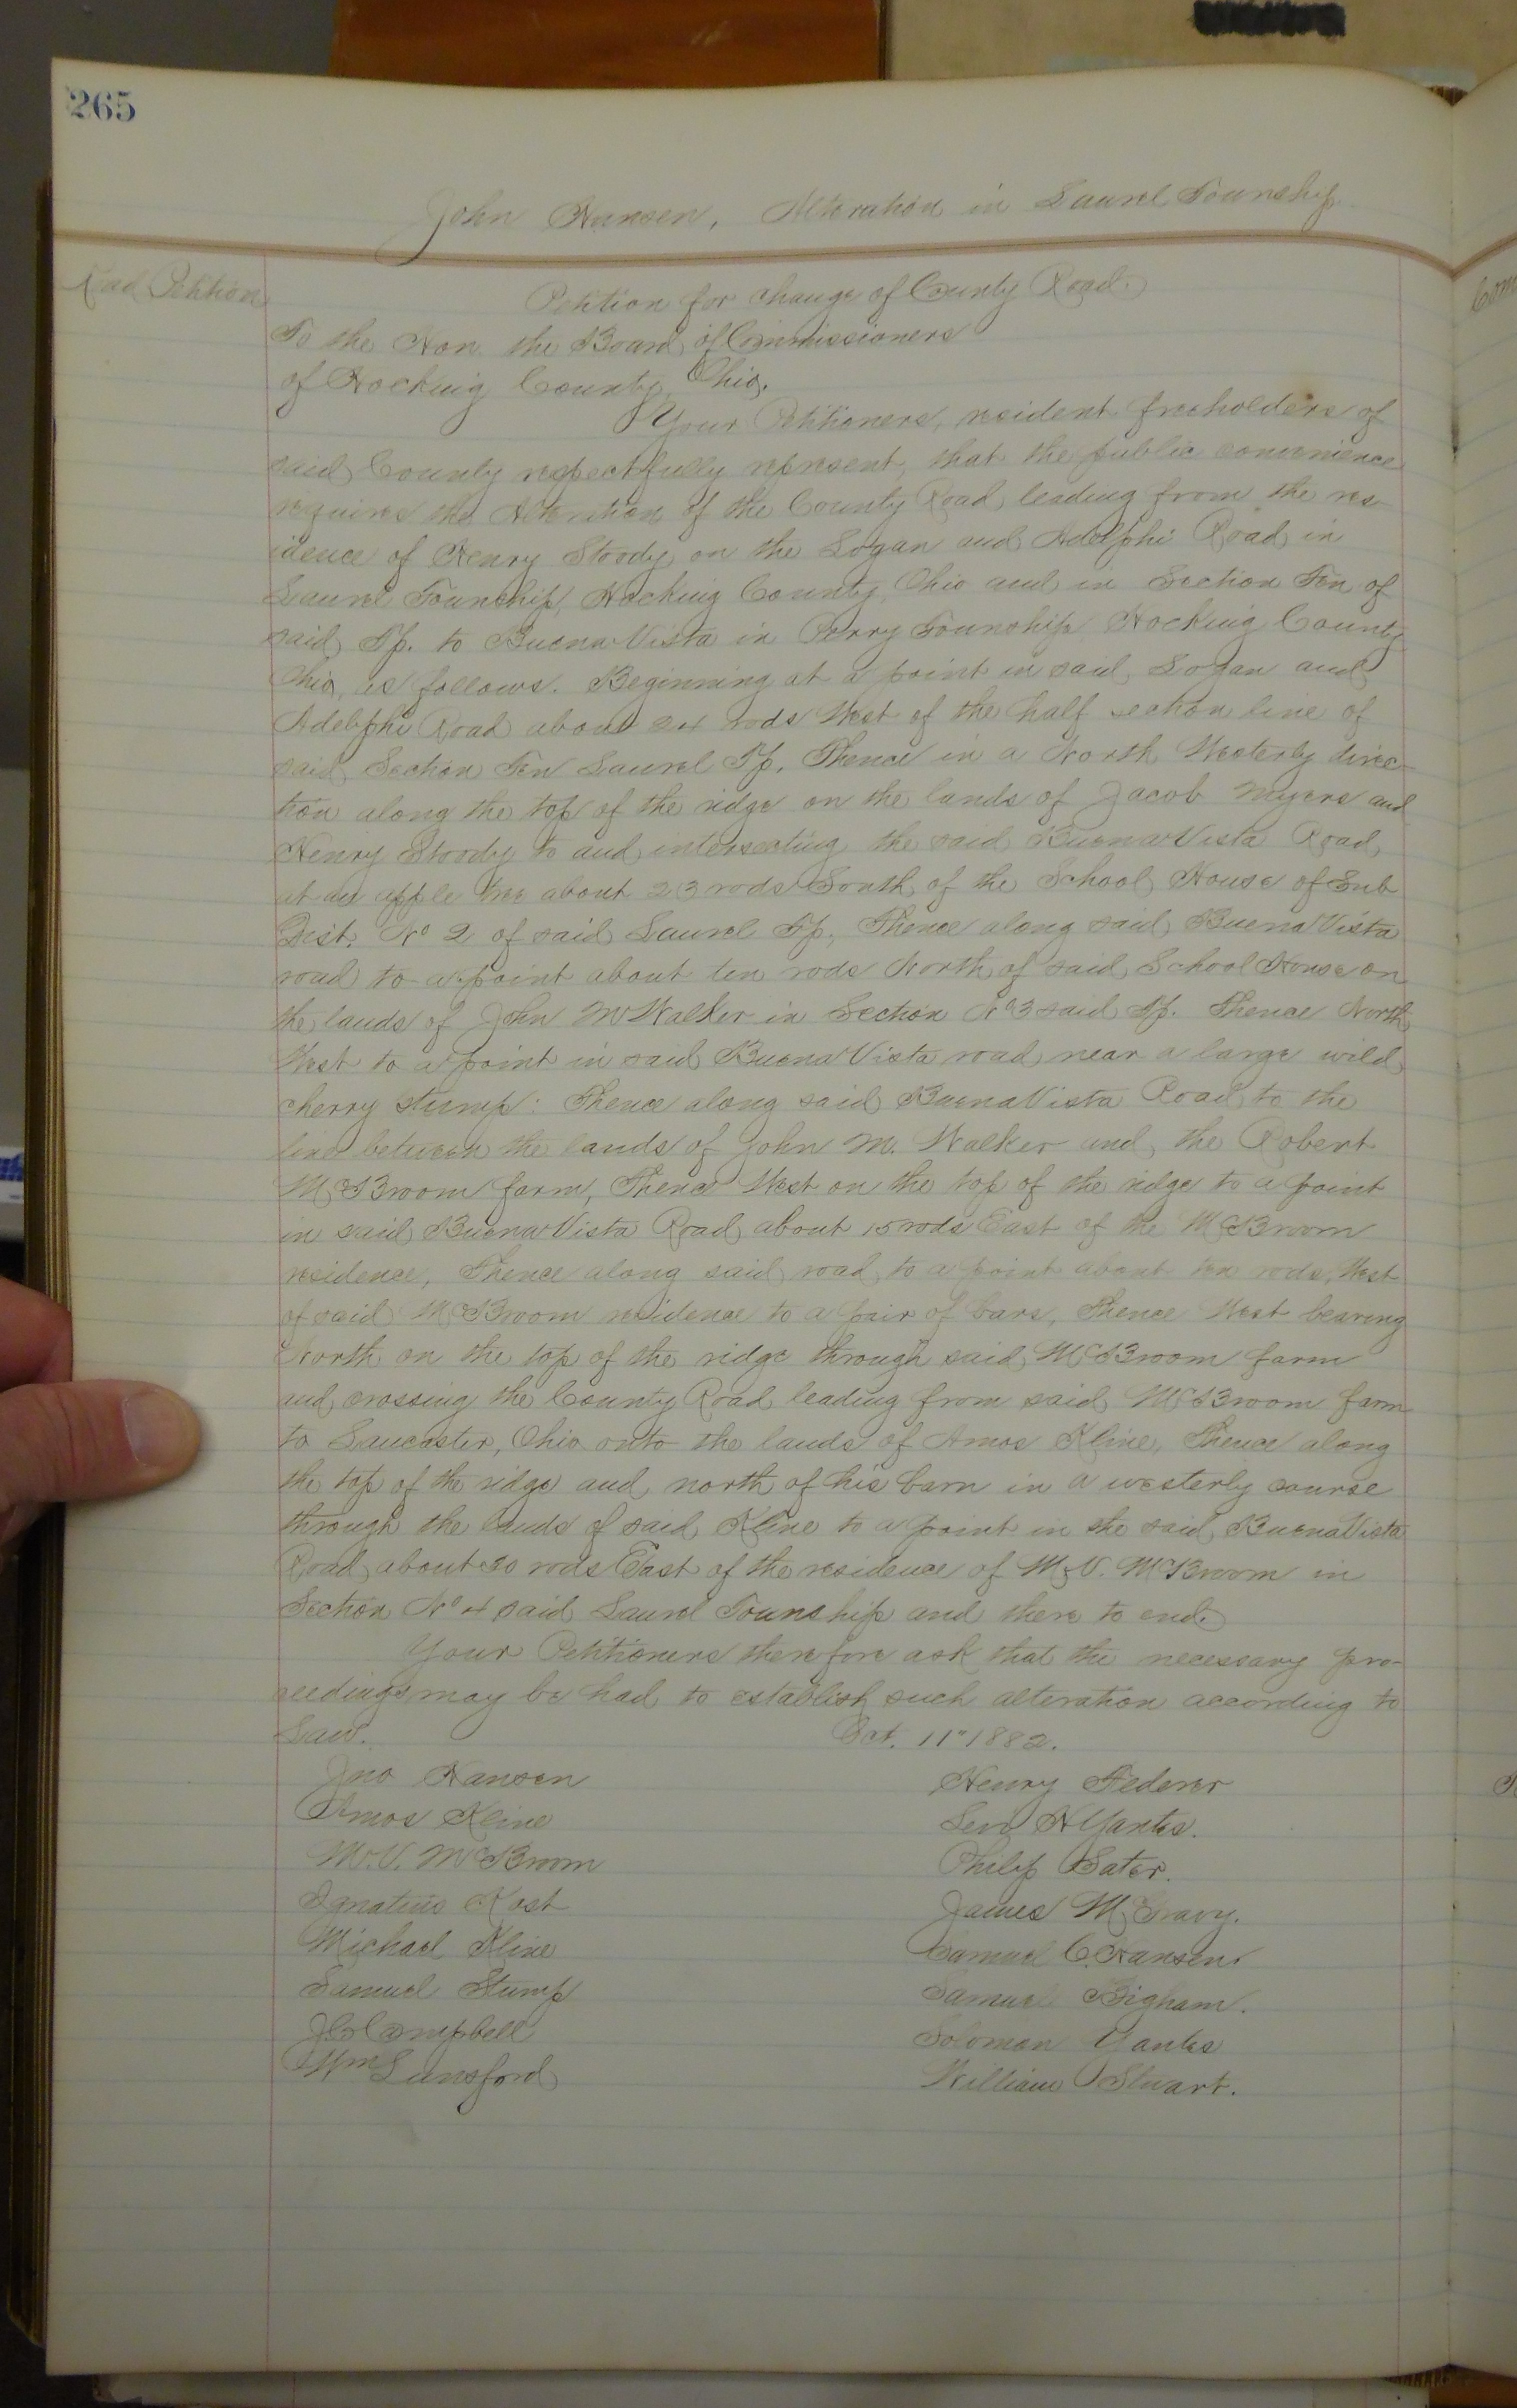 265
John Hansen, Alteration in Laurel Township
Road Petition
Petition for change of County Road.
To the Hon. the Board of Commissioners
of Hocking County, Ohio.
Your Petitioners, resident freeholders of
said County respectfully represent, that the public convenience
requires the Alteration of the County Road, leading from the res-
idence of Henry Stoody on the Logan and Adelphi Road, in
Laurel Township, Hocking County, Ohio and in Section Ten of
said Tp. to Buena Vista in Perry Township Hocking County
Ohio, as follows. Beginning at a point in said, Logan and
Adelphi Road about 24 rods West of the half section line of
said Section Ten Laurel Tp. Thence in a North Westerly direc-
tion along the top of the ridge on the lands of Jacob Myers and
Henry Stoody to and intersecting the said Buena Vista Road,
at an apple tree about 23 rods South of the School House of Sub
Dist. No 2 of said Laurel Tp., Thence along said Buena Vista
road to a point about ten rods North of said School House on
the lands of John M Walker in Section No 3 said Tp. Thence North
West to a point in said Buena Vista road near a large wild
cherry stump: Thence along said Buena Vista Road to the
line between the lands of John M. Walker and the Robert
McBroom farm, Thence West on the top of the ridge to a point
in said Buena Vista Road about 15 rods East of the McBroom
residence, Thence along said road to a point about ten rods West
of said McBroom residence to a pair of bars, Thence West bearing
North on the top of the ridge through said McBroom farm
and crossing the County Road leading from said McBroom farm
to Lancaster, Ohio onto the lands of Amos Kline, Thence along
the top of the ridge and north of his barn in a westerly course
through the lands of said Kline to a point in the said Buena Vista
Road about 30 rods East of the residence of M.V. McBroom in
Section No 4 said Laurel Township and there to end.
Your Petitioners therefore ask that the necessary pro-
ceedings may be had to establish such alteration according to
Law. Oct. 11" 1882.
Jno Hansen
Henry Federer
Amos Kline
Levi H Yantes.
M.V. McBroom
Philip Sater.
Ignatius Kost
James McGravy.
Michael Kline
Samuel C. Hansen.
Samuel Stump
Samuel Bigham.
J.C. Campbell
Solomon Yantes
Wm Lunsford
William Stuart.